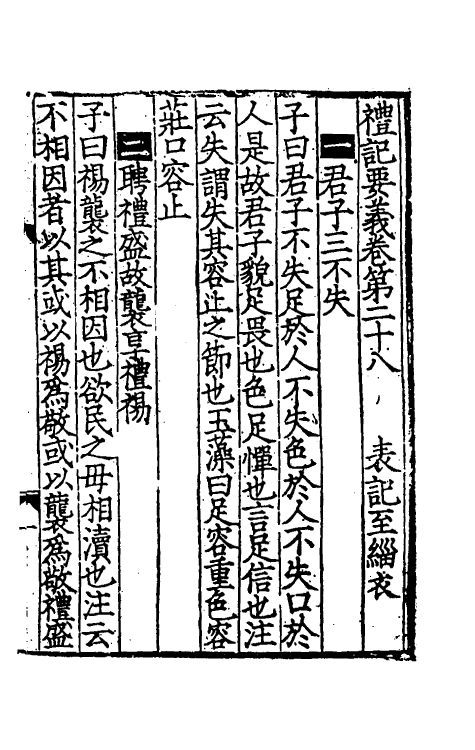 禮記要義卷第二十八 表記至緇衣
一 君子三不失
子曰君子不失足於人不失色於人不失口於
人是故君子貌足畏也色足憚也言足信也注
云失謂失其容止之節也玉藻曰足容重色容
莊口容止
二 聘禮盛故襲享禮裼
子曰裼襲之不相因也欲民之毋相瀆也注云
不相因者以其或以裼爲敬或以襲爲敬禮盛